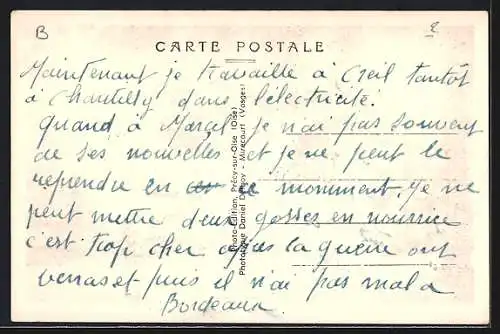 B
2
CARTE POSTALE
Maintenant je travaille à Creil tantôt
à Chantilly dans l'électricité.
quand à Marcel je n'ai pas souvent
de ses nouvelles et je ne peut le
reprendre en ce momment. je ne
peut mettre deux gosses en nourrice
c'est trop cher après la guerre ont
verras et puis il n'ai pas mal a
Bordeaux
Photo-Edition, Précy-sur-Oise (Oise)
Phototypie Daniel - Mirecourt (Vosges)